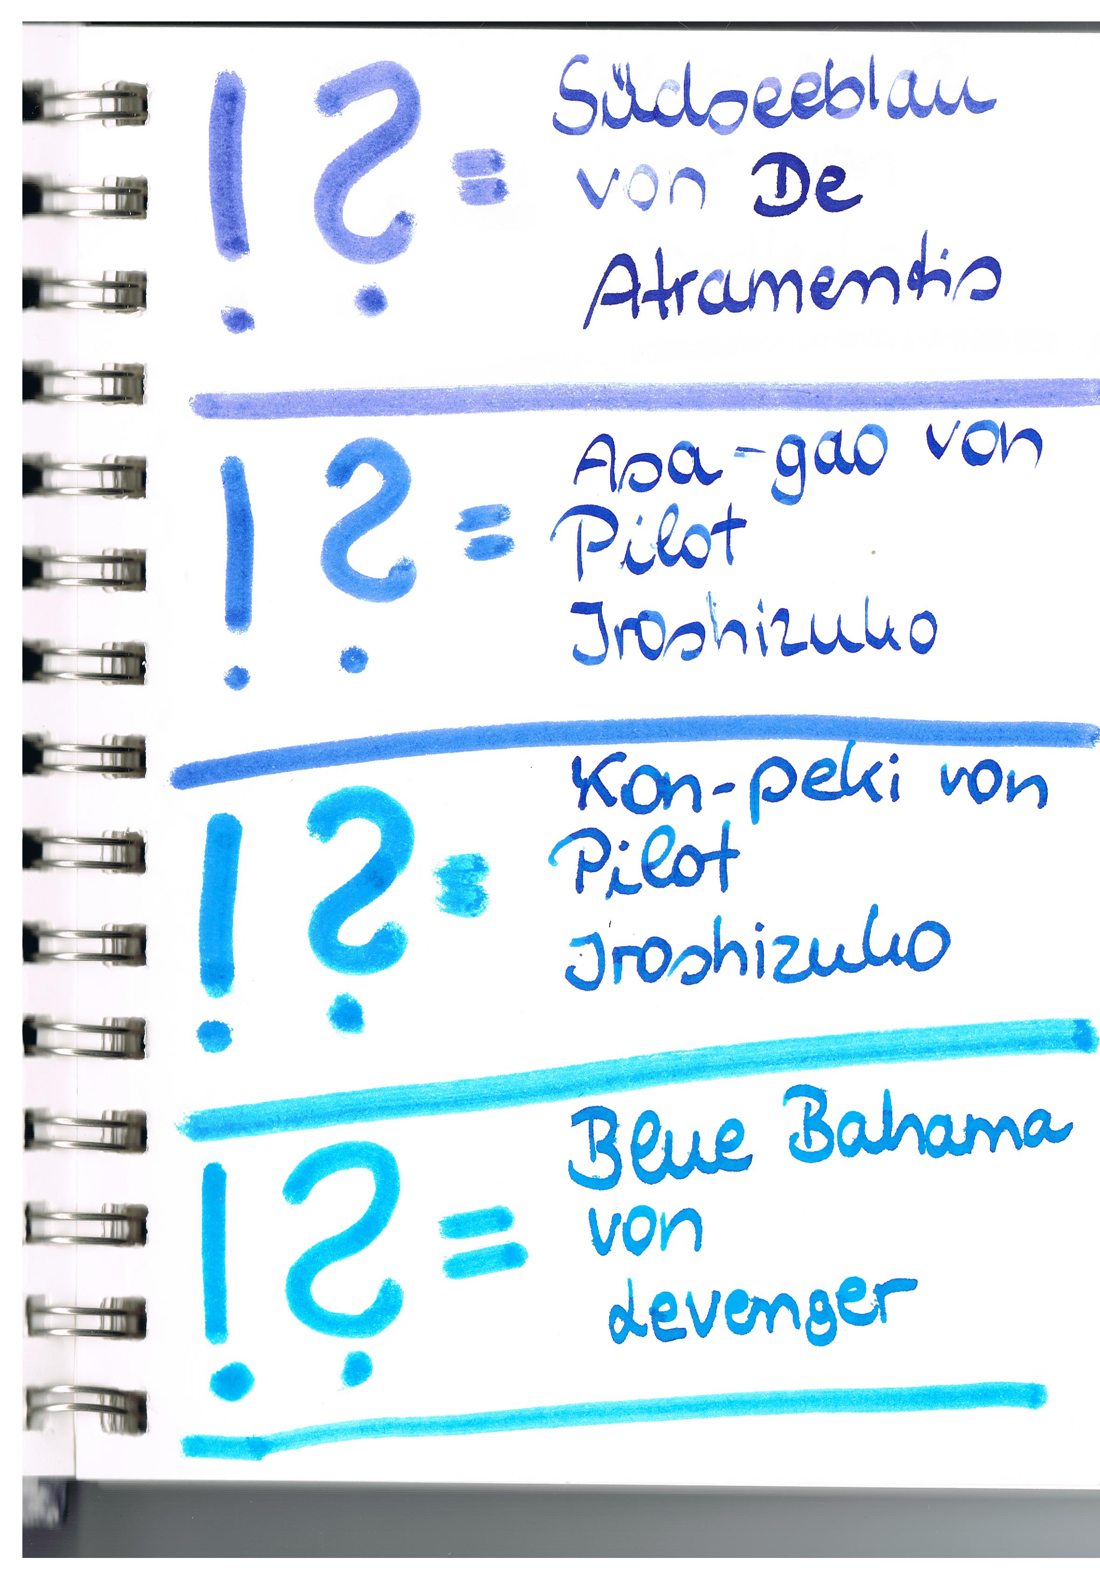 ! ? = Südseeblau
von De
Atramentis
! ? = Asa-gao von
Pilot
Iroshizuko
! ? = Kon-peki von
Pilot
Iroshizuko
! ? = Blue Bahama
von
Levenger